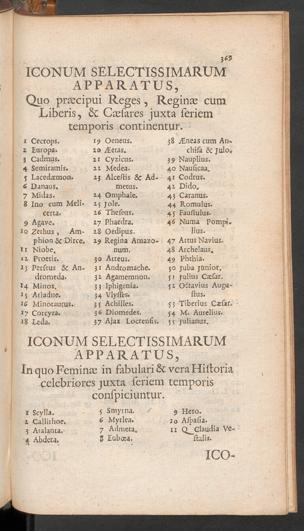 369
ICONUM SELECTISSIMARUM
APPARATUS,
Quo præcipui Reges, Reginæ cum
Liberis, & Cæsares juxta seriem
temporis continentur.
1 Cecrops.
2 Europa.
3 Cadmus.
4 Semiramis.
5 Lacedæmon.
6 Danaus.
7 Midas.
8 Ino cum Meli-
certa.
9 Agave.
10 Zethus, Am-
phion & Dirce.
11 Niobe.
12 Proetis.
13 Perseus & An-
dromeda.
14 Minos.
15 Ariadne.
16 Minotaurus.
17 Corcyra.
18 Leda.
19 Oeneus.
20 Æetas.
21 Cyzicus.
22 Medea.
23 Alcestis & Ad-
metus.
24 Omphale.
25 Jole.
26 Theseus.
27 Phædra.
28 Oedipus.
29 Regina Amazo-
num.
30 Atreus.
31 Andromache.
32 Agamemnon.
33 Iphigenia.
34 Ulysses.
35 Achilles.
36 Diomedes.
37 Ajax Locrensis.
38 Æneas cum An-
chisa & Julo.
39 Nauplius.
40 Nausicaa.
41 Codrus.
42 Dido.
43 Caranus.
44 Romulus.
45 Faustulus.
46 Numa Pompi-
lius.
47 Attus Navius.
48 Archelaus.
49 Phthia.
50 Juba junior.
51 Julius Cæsar.
52 Octavius Augu-
stus.
53 Tiberius Cæsar.
54 M. Aurelius.
55 Julianus.
ICONUM SELECTISSIMARUM
APPARATUS,
In quo Feminæ in fabulari & vera Historia
celebriores juxta seriem temporis
conspiciuntur.
1 Scylla.
2 Callithoe.
3 Atalanta.
4 Abdera.
5 Smyrna.
6 Myrlea.
7 Admeta.
8 Euboea.
9 Hero.
10 Aspasia.
11 Q. Claudia Ve-
stalis.
ICO-